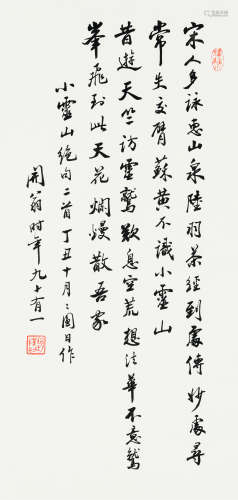 宋人多詠惠山泉陸羽茶經到處傳妙處尋
常失交臂蘇黃不識小靈山
昔遊天竺訪靈鷲歎息空荒想法華不意鷲
峯飛到此天花爛熳散吾家
小靈山絕句二首丁丑十月之圓日作
開翁時年九十有一